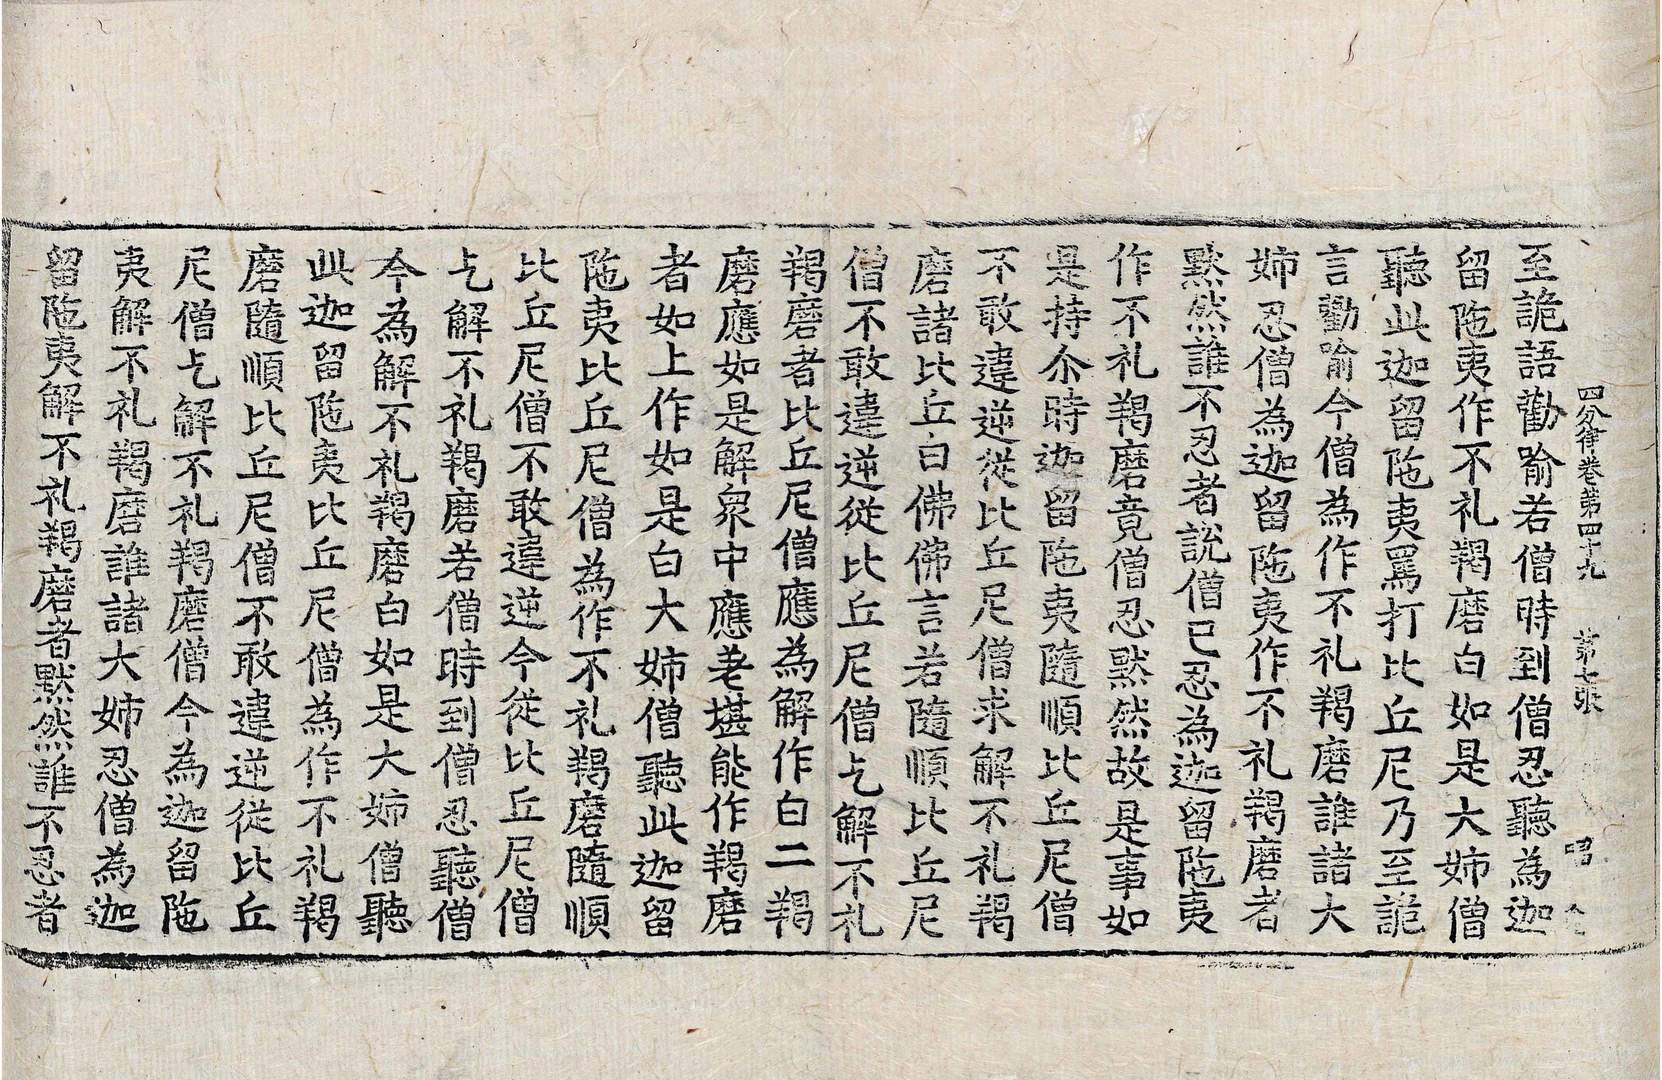 四分律卷第四十九　第七張　　昭
至詭語勸喻若僧時到僧忍聽為迦
留陁夷作不礼羯磨白如是大姉僧
聽此迦留陁夷罵打比丘尼乃至詭
言勸喻今僧為作不礼羯磨誰諸大
姉忍僧為迦留陁夷作不礼羯磨者
黙然誰不忍者說僧已忍為迦留陁夷
作不礼羯磨竟僧忍黙然故是事如
是持尒時迦留陁夷隨順比丘尼僧
不敢違逆從比丘尼僧求解不礼羯
磨諸比丘白佛佛言若隨順比丘尼
僧不敢違逆從比丘尼僧乞解不礼
羯磨者比丘尼僧應為解作白二羯
磨應如是解衆中應差堪能作羯磨
者如上作如是白大姉僧聽此迦留
陁夷比丘尼僧為作不礼羯磨隨順
比丘尼僧不敢違逆今從比丘尼僧
乞解不礼羯磨若僧時到僧忍聽僧
今為解不礼羯磨白如是大姉僧聽
此迦留陁夷比丘尼僧為作不礼羯
磨隨順比丘尼僧不敢違逆從比丘
尼僧乞解不礼羯磨僧今為迦留陁
夷解不礼羯磨誰諸大姉忍僧為迦
留陁夷解不礼羯磨者黙然誰不忍者